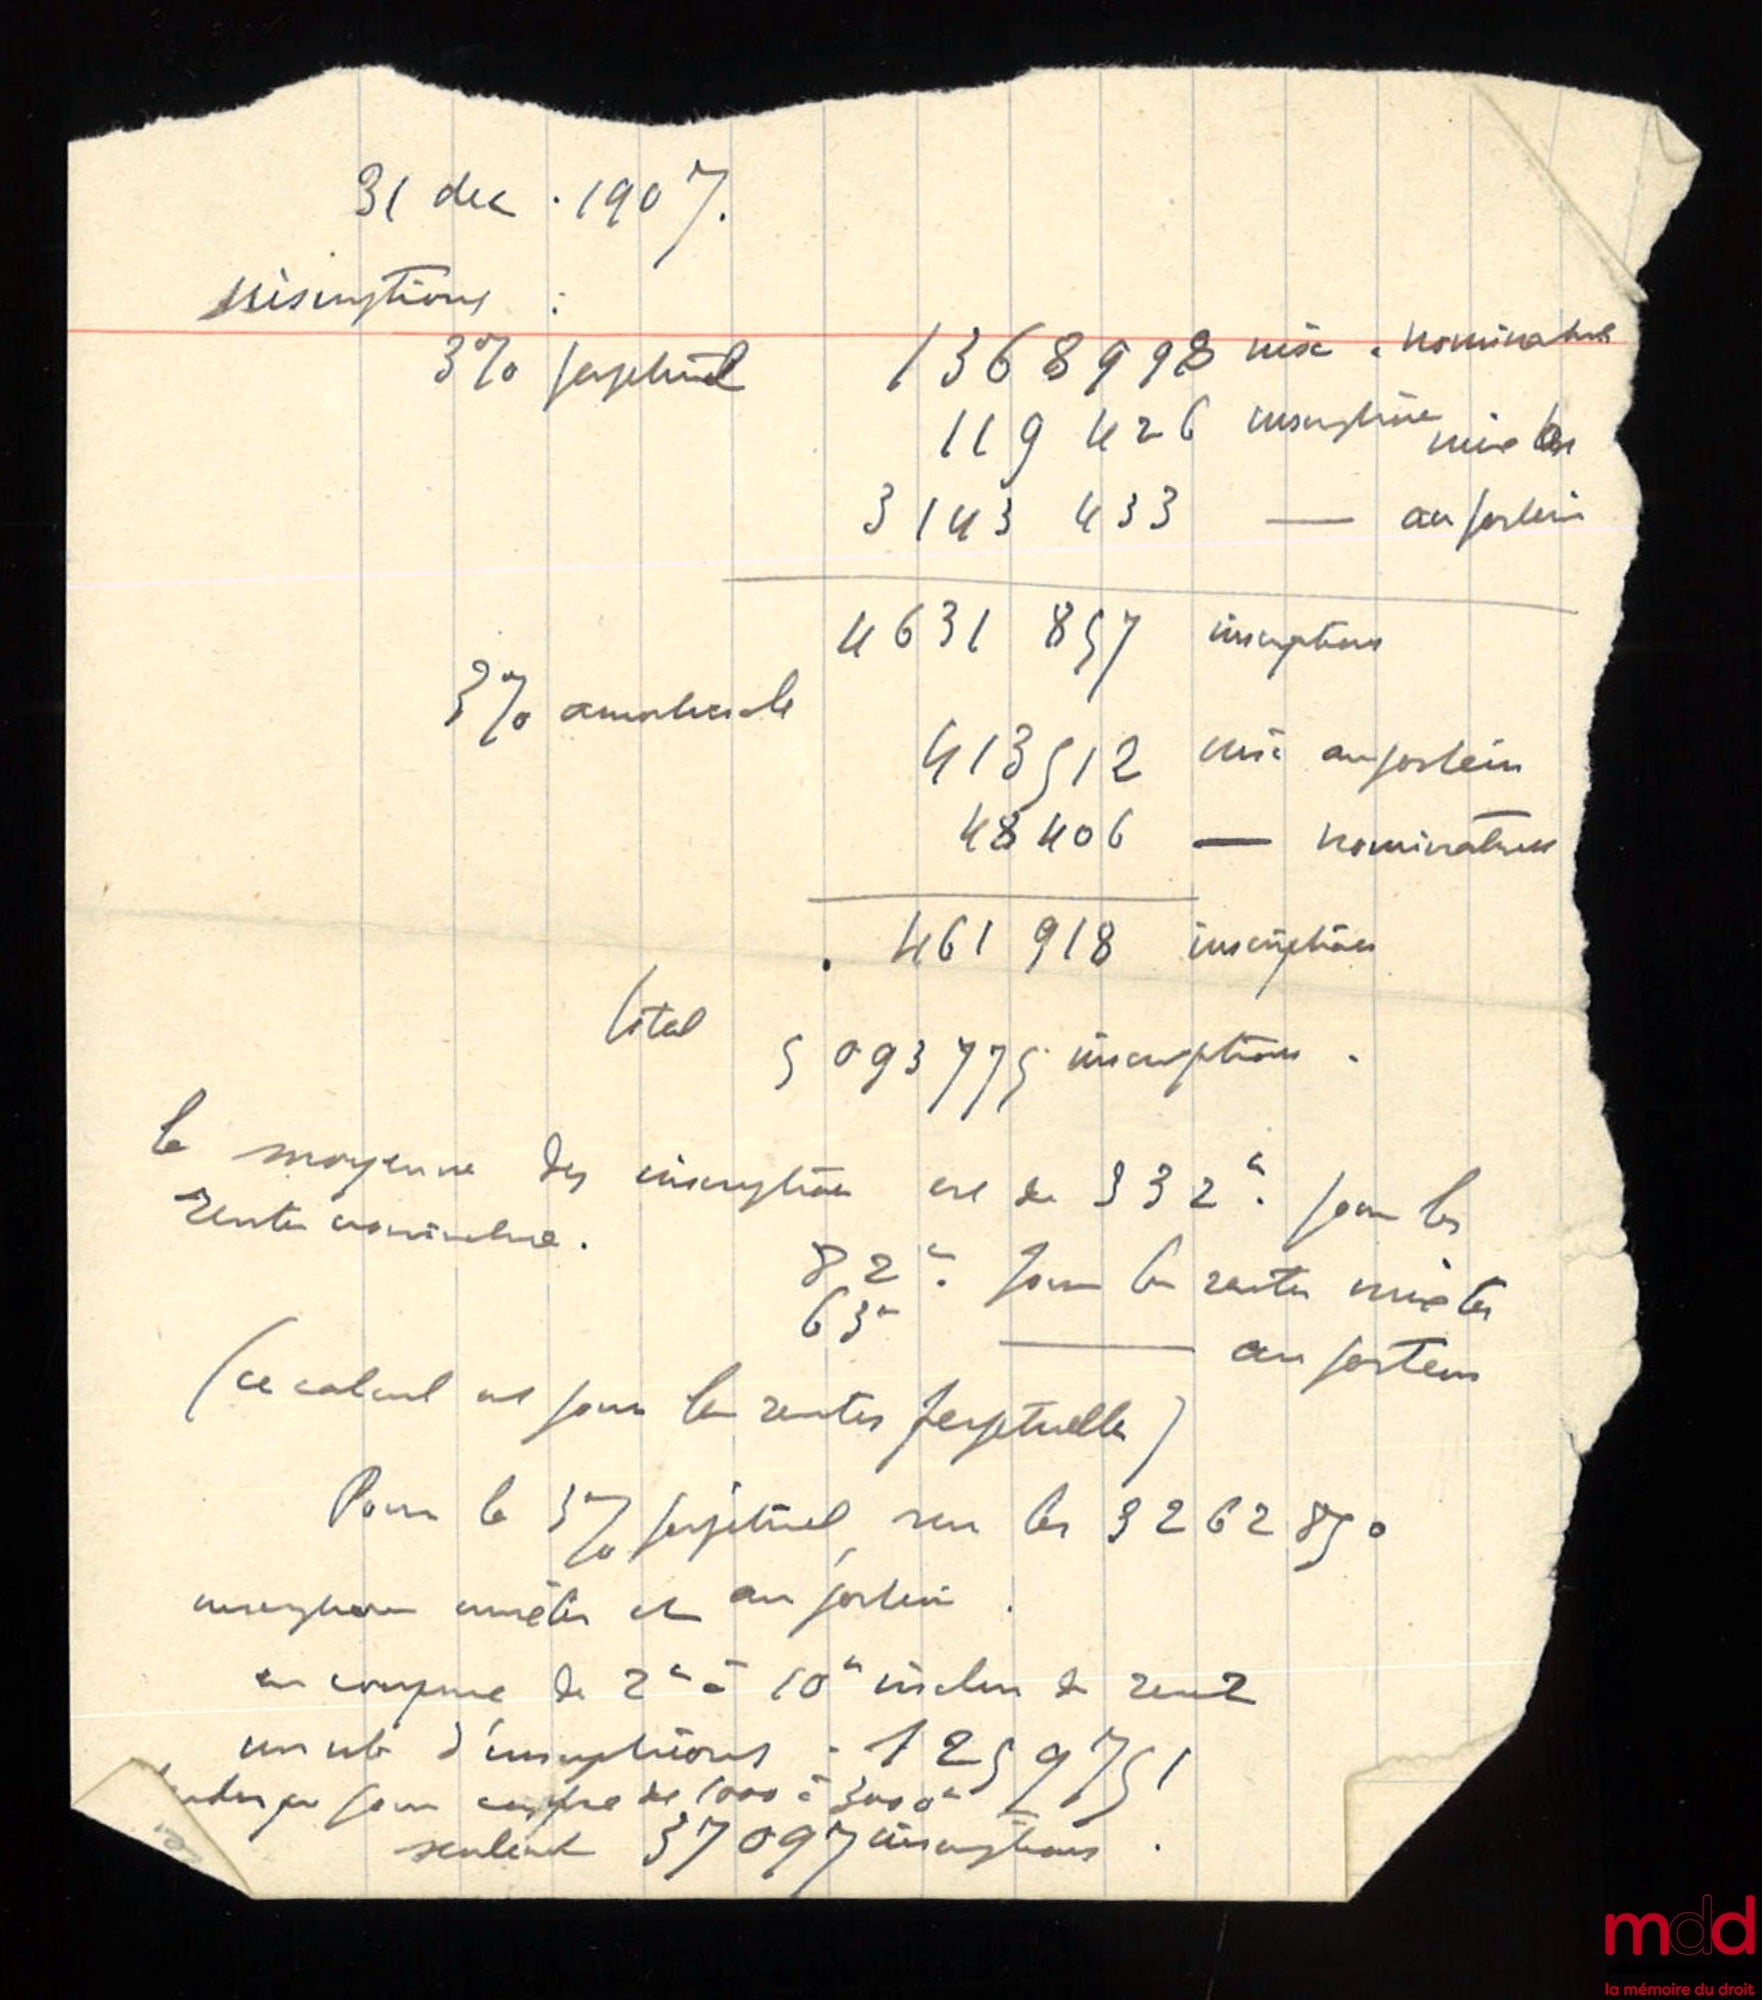 31 dec. 1907.
inscriptions :
3% perpétuel 1368998 insc. nominatives
119 426 inscriptions mixtes
3143 433 — au porteur
4631 857 inscriptions
3% amortissable
413512 insc au porteur
48406 — nominatives
461 918 inscriptions
total 5093775 inscriptions.
la moyenne des inscriptions est de 332 fr. pour les
rentes nominatives.
82 fr. pour les rentes mixtes
63 fr — au porteur
(ce calcul est pour les rentes perpétuelles)
Pour le 3% perpétuel, sur les 3262850
inscriptions mixtes et au porteur.
en coupure de 2 fr à 10 fr inclus de rente
un nb d'inscriptions : 1259751
pour coupure de 1000 à 3000 fr
seulement 37097 inscriptions.
mdd
la mémoire du droit